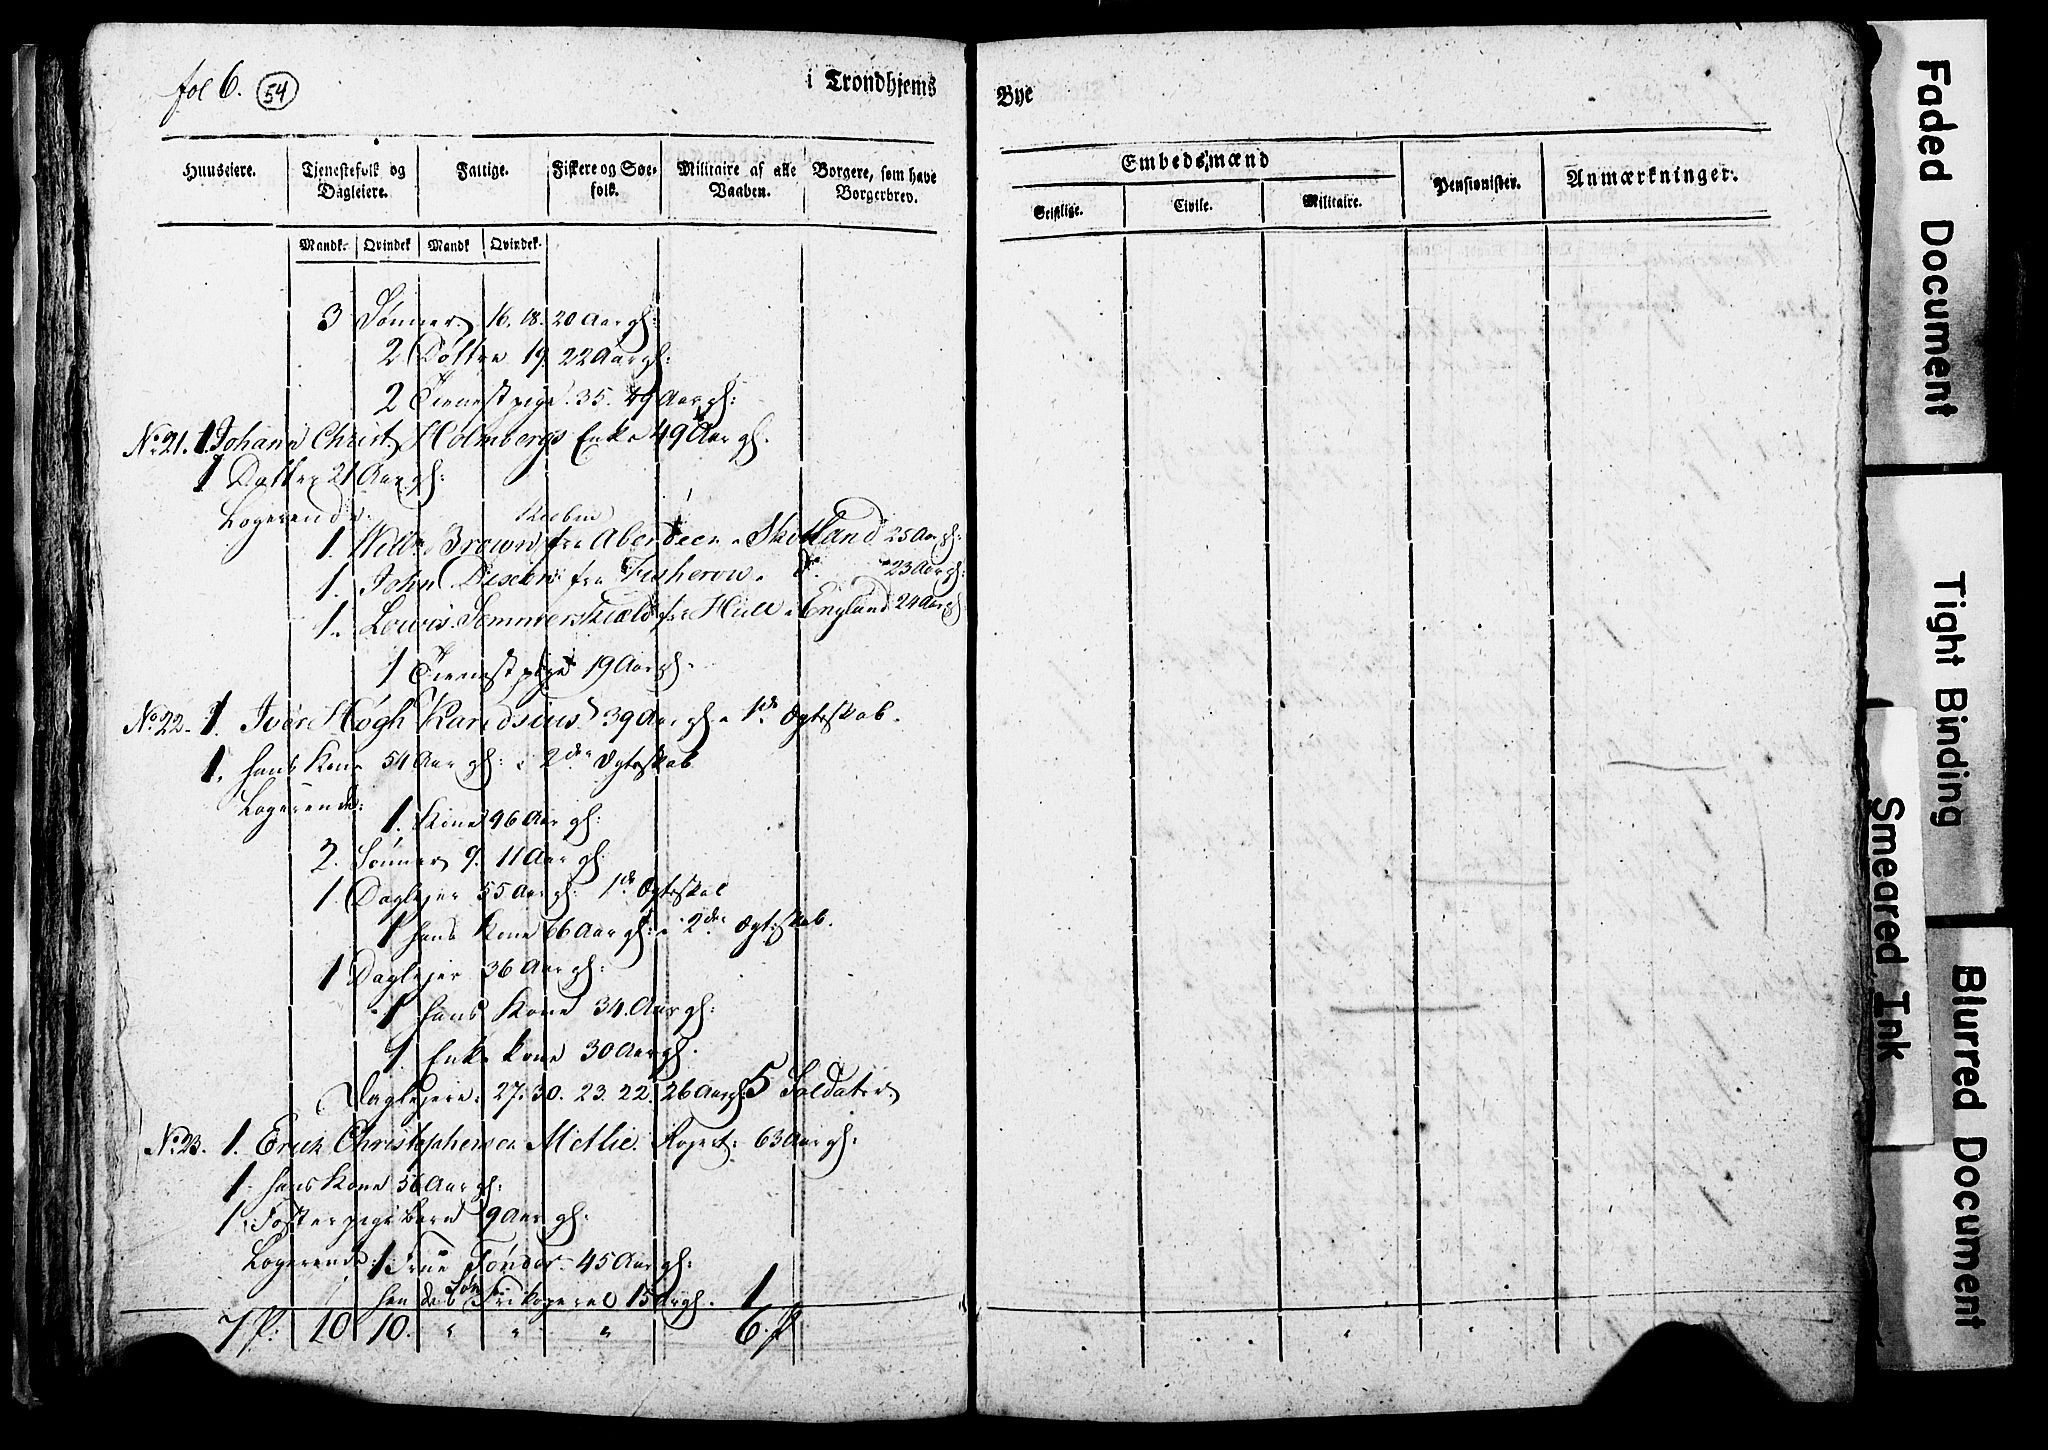 fol 6. 54
i Trondhjems
Bye
Huuseiere.
Tjenestefolk og Dagleiere.
Fattige.
Fiskere og Søe-folk.
Militaire af alle Vaaben.
Borgere, som have Borgerbrev.
Embedsmænd
Geistlige.
Civile.
Militaire.
Pensionister.
Anmærkninger.
Mandk. Qvindek Mandk Qvindek.
3 Sønner 16. 18. 20 Aar gl:
2 Døttre 19. 22 Aar gl:
2 Tienestpige. 35. 49 Aar gl:
No. 21. 1. Johann Christ. Holmbergs Enke 49 Aar gl.
1 Datter 21 Aar gl:
Logerende.
1. Will. Brown fra Aberdeen i Skotland 25 Aar gl:
1. John fra Fisherow i do. 23 Aar gl:
1. Lowis. Sommerskiæld fra Hull i England 24 Aar gl
1 Tienestpige 19 Aar gl:
No. 22. 1. Iver Høgh 39 Aar gl i 1de Ægteskab.
1. hans Kone 54 Aar gl: i 2den Ægteskab
Logerende:
1. Kone 96 Aar gl:
2. Sønner 9. 11 Aar gl:
1 Daglejer 55 Aar gl: 1de Ægteskab
1 hans Kone 66 Aar gl: i 2den Ægteskab.
1 Daglejer 36 Aar gl:
1 hans Kone 34. Aar gl:
1. Enke kone 30 Aar gl.
Daglejere. 27. 30. 23. 22. 26 Aar gl 5 Soldater.
No. 23. 1. Erich Christophersen Metlie. 63 Aar gl:
1 hans Kone 56 Aar gl:
1. Foster pige barn 9 Aar gl:
Logerende: 1 Frue Tønder. 45 Aar gl:
hendes Søn 15 Aar gl. 1
7 P: 10 10. " " " 6. P
Faded Document
Tight Binding
Smeared Ink
Blurred Document